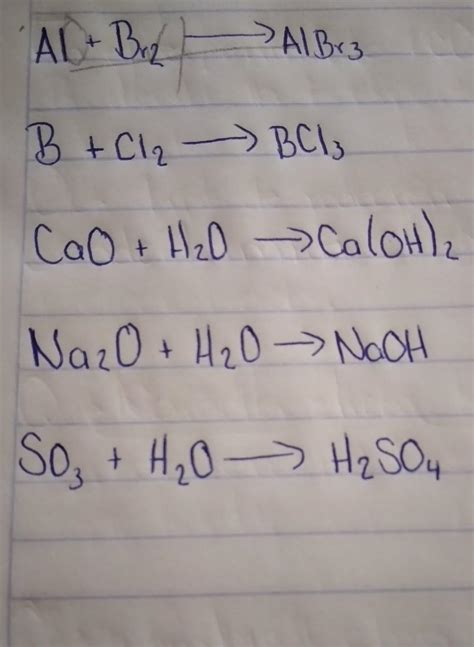 Al + Br2 → AlBr3
B + Cl2 → BCl3
CaO + H2O → Ca(OH)2
Na2O + H2O → NaOH
SO3 + H2O → H2SO4